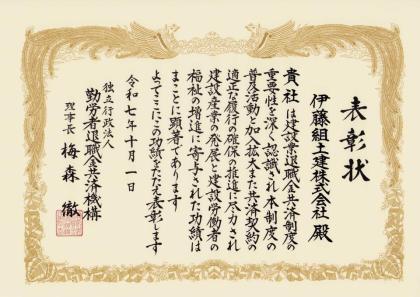 表彰状
伊藤組土建株式会社 殿
貴社は建設業退職金共済制度の
重要性を深く認識され本制度の
普及活動と加入拡大また共済契約の
適正な履行の確保の推進に尽力され
建設産業の発展と建設労働者の
福祉の増進に寄与された功績は
まことに顕著であります
よってここにその功績をたたえ表彰します
令和七年十月一日
独立行政法人
勤労者退職金共済機構
理事長 梅森 徹